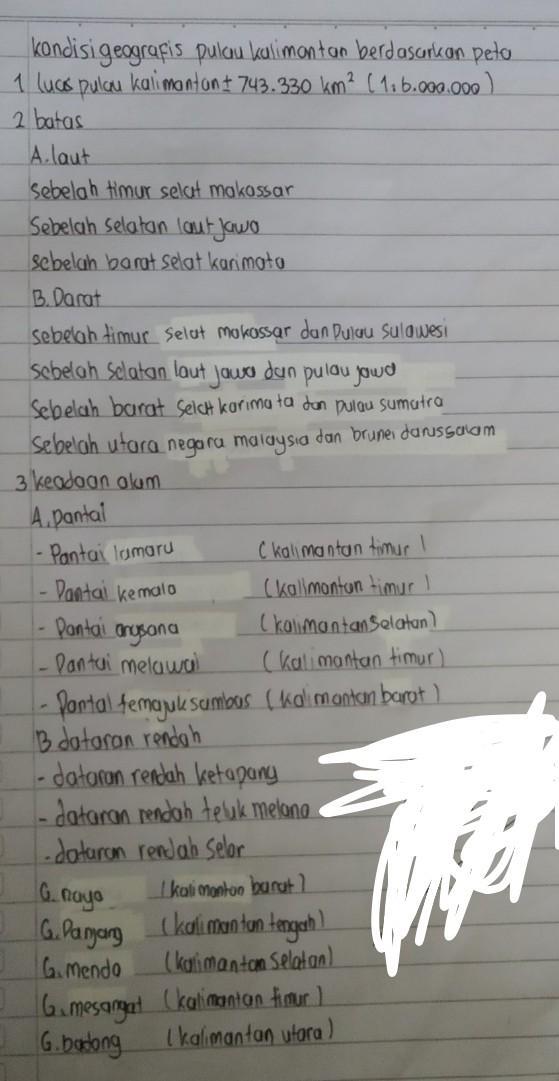 kondisi geografis pulau kalimantan berdasarkan peta
1 luas pulau kalimantan ± 743.330 km² (1:6.000.000)
2 batas
A. laut
Sebelah timur selat makassar
Sebelah selatan laut jawa
sebelah barat selat karimata
B. Darat
sebelah timur selat makassar dan pulau sulawesi
sebelah selatan laut jawa dan pulau jawa
Sebelah barat selat karimata dan pulau sumatra
Sebelah utara negara malaysia dan brunei darussalam
3 keadaan alam
A. pantai
- Pantai lamaru (kalimantan timur)
- Pantai kemala (kalimantan timur)
- Pantai angsana (kalimantan selatan)
- Pantai melawai (kalimantan timur)
- Pantai temajuk sambas (kalimantan barat)
B dataran rendah
- dataran rendah ketapang
- dataran rendah teluk melano
- dataran rendah selor
G. naya (kalimantan barat)
G. Panjang (kalimantan tengah)
G. mendo (kalimantan selatan)
G. mesangat (kalimantan timur)
G. badang (kalimantan utara)